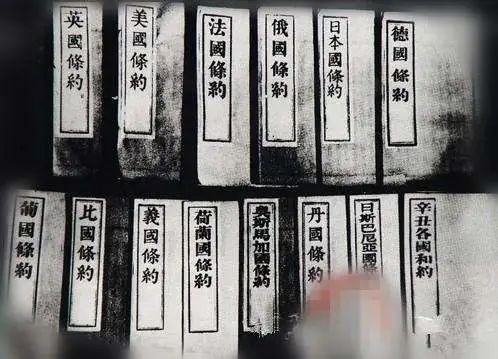 英國條約
美國條約
法國條約
俄國條約
日本國條約
德國條約
葡國條約
比國條約
義國條約
荷蘭國條約
奧斯馬加國條約
丹國條約
日斯巴尼亞國條
辛丑各國和約